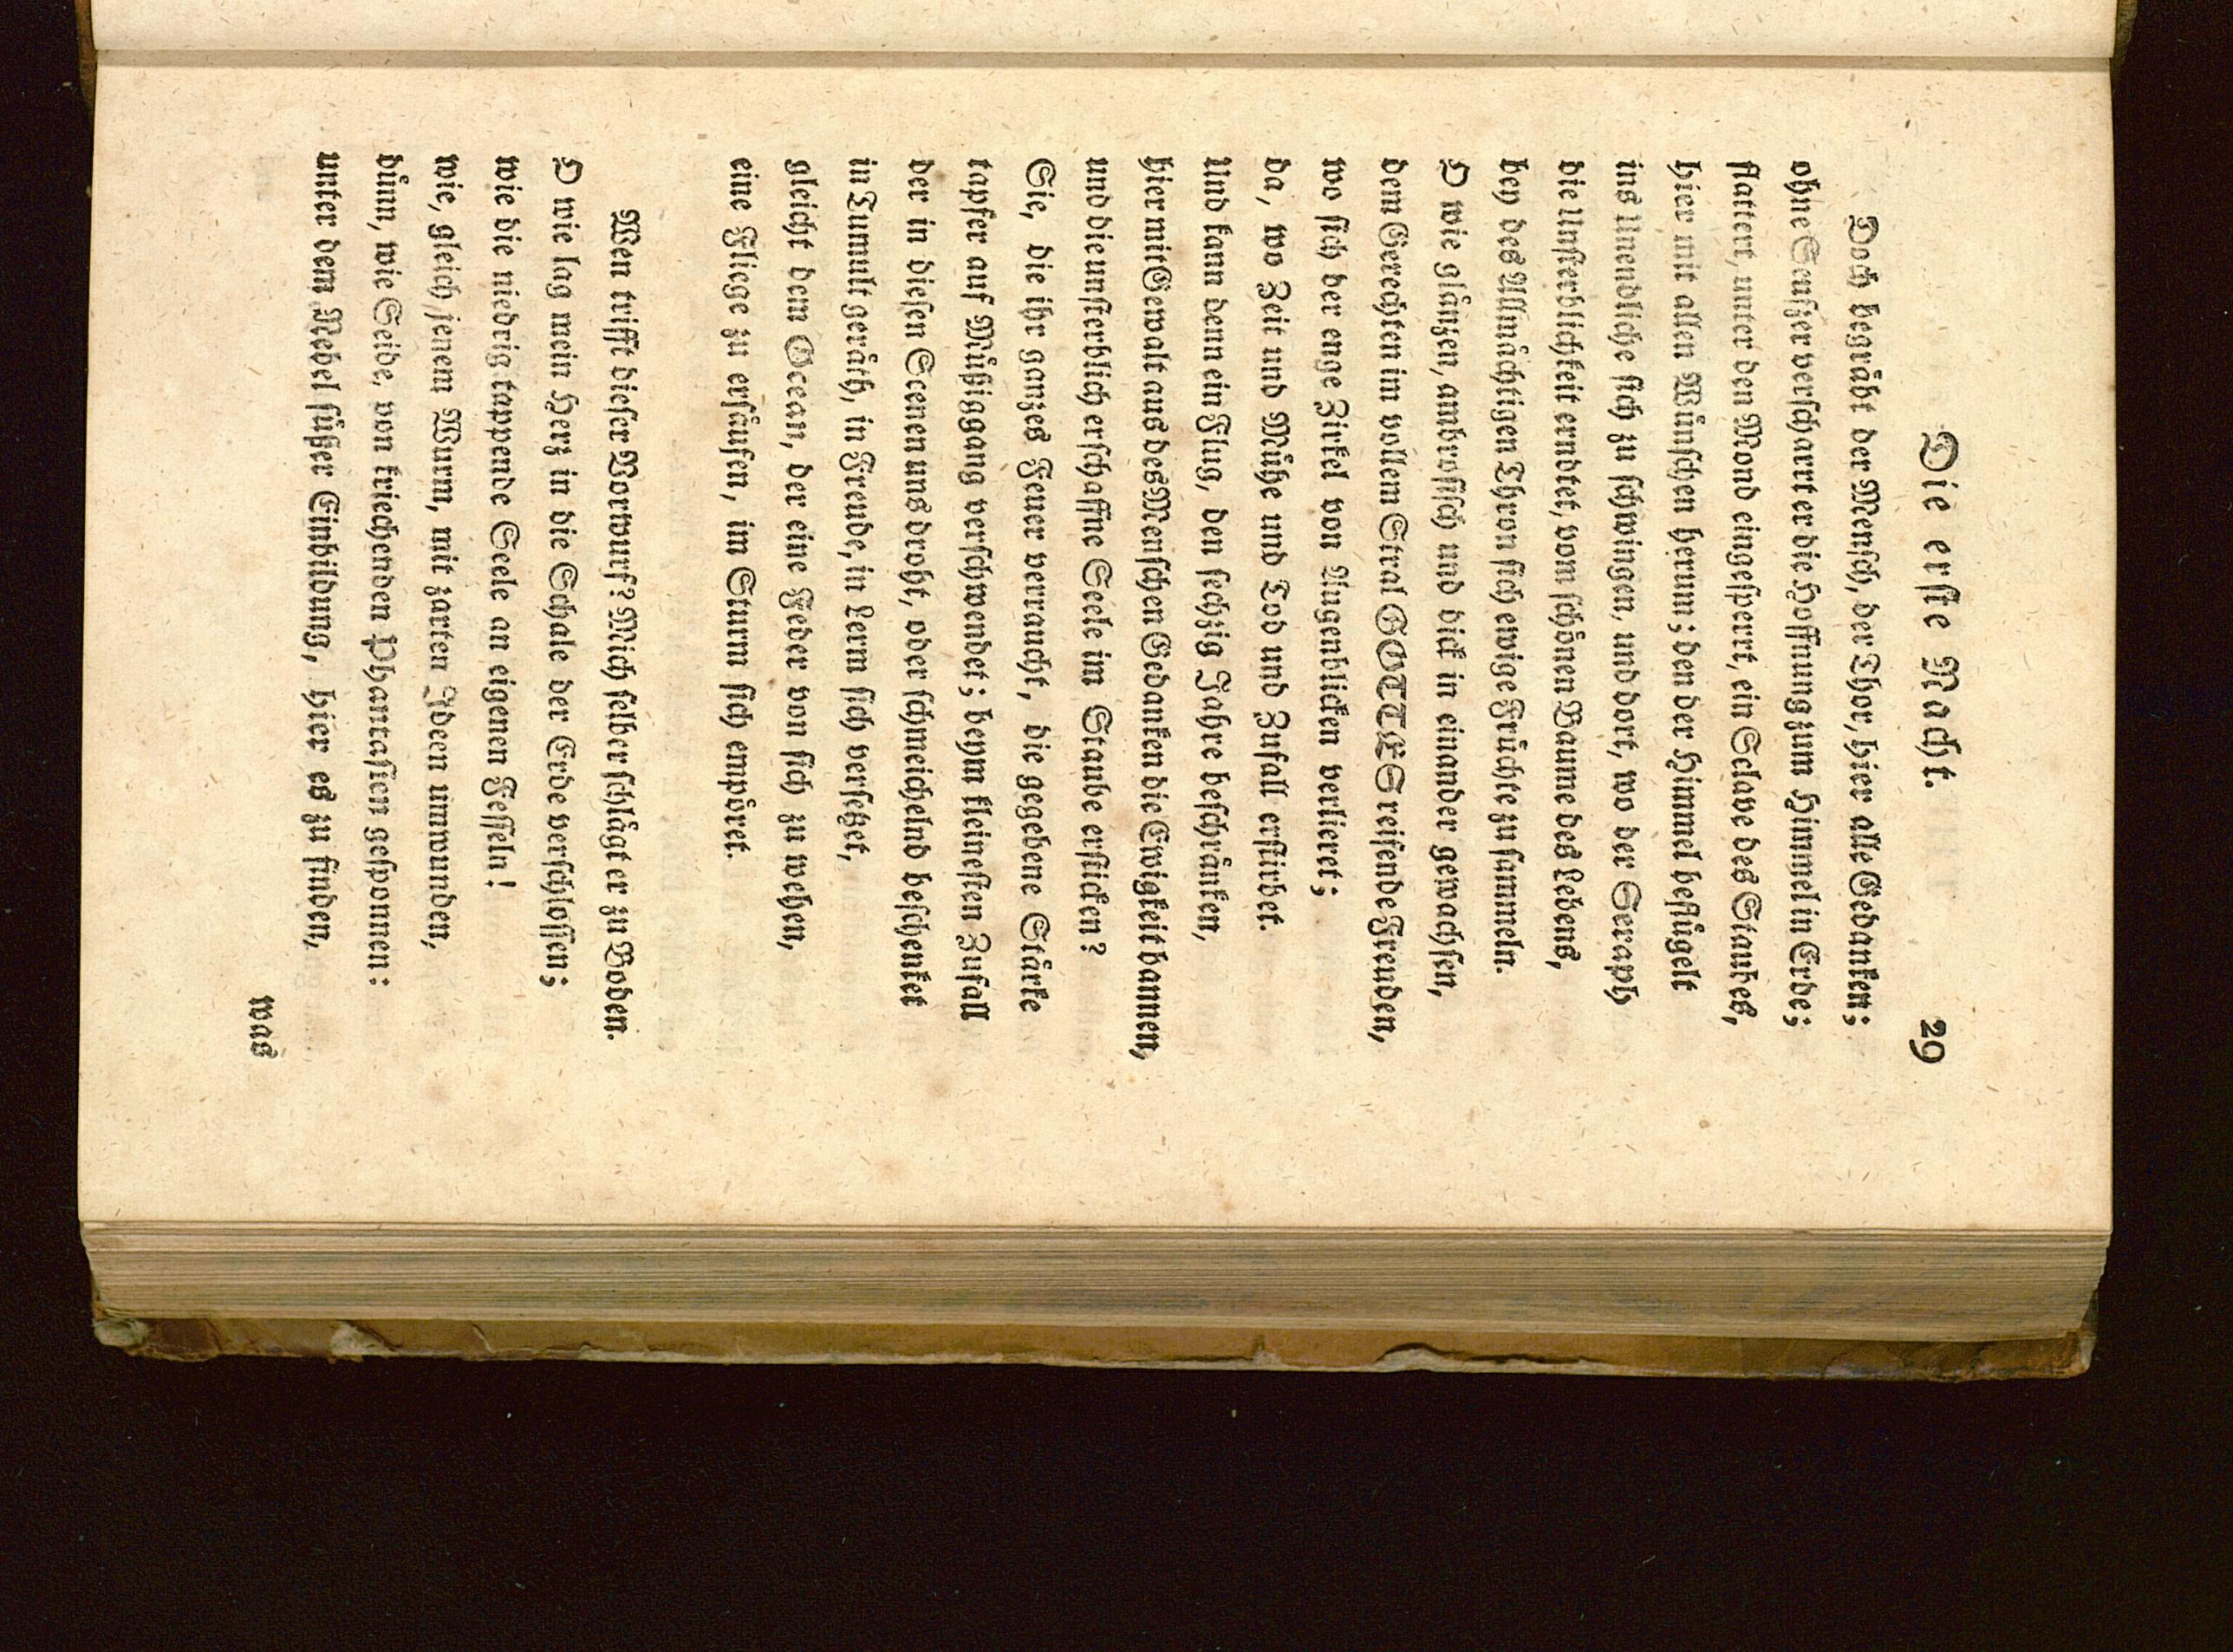 Die erſte Nacht. 29
Doch begräbt der Menſch, der Thor, hier alle Gedanken;
ohne Seufzer verſcharrt er die Hoffnung zum Himmel in Erde;
flattert, unter den Mond eingeſperrt, ein Sclave des Staubes,
hier mit allen Wünſchen herum; den der Himmel beflügelt
ins Unendliche ſich zu ſchwingen, und dort, wo der Seraph
die Unſterblichkeit erndtet, vom ſchönen Baume des Lebens,
bey des Allmächtigen Thron ſich ewige Früchte zu ſammeln.
O wie glänzen, ambroſiſch und dick in einander gewachſen,
dem Gerechten im vollem Stral GOTTES reifende Freuden,
wo ſich der enge Zirkel von Augenblicken verlieret;
da, wo Zeit und Mühe und Tod und Zufall erſtirbet.
Und kann denn ein Flug, den ſechzig Jahre beſchränken,
hier mit Gewalt aus des Menſchen Gedanken die Ewigkeit bannen,
und die unſterblich erſchaffne Seele im Staube erſticken?
Sie, die ihr ganzes Feuer verraucht, die gegebene Stärke
tapfer auf Müßiggang verſchwendet; beym kleineſten Zufall
der in dieſen Scenen uns droht, oder ſchmeichelnd beſchenket
in Tumult geräth, in Freude, in Lerm ſich verſetzet,
gleicht dem Ocean, der eine Feder von ſich zu wehen,
eine Fliege zu erſäufen, im Sturm ſich empöret.
Wen trifft dieſer Vorwurf? Mich ſelber ſchlägt er zu Boden.
O wie lag mein Herz in die Schale der Erde verſchloſſen;
wie die niedrig tappende Seele an eigenen Feſſeln!
wie, gleich jenem Wurm, mit zarten Ideen umwunden,
dünn, wie Seide, von kriechenden Phantaſien geſponnen:
unter dem Nebel ſüßer Einbildung, hier es zu finden,
was